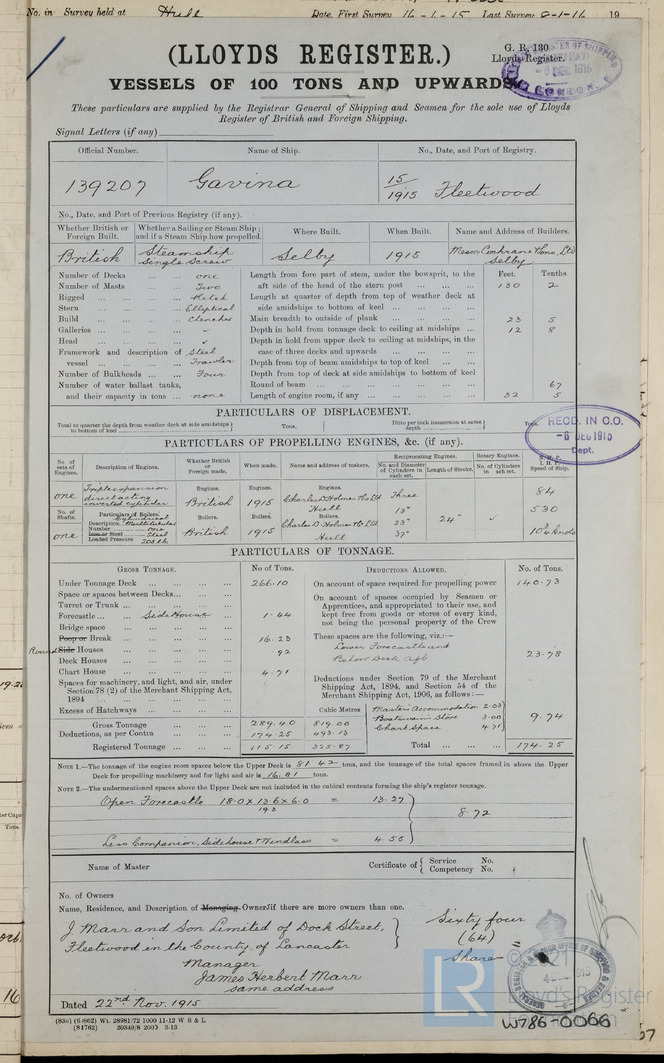 No. in Survey held at Hull Date, First Survey 16-1-15 Last Survey 19
(LLOYDS REGISTER.)
G. R. 130
Lloyds Register.
VESSELS OF 100 TONS AND UPWARDS.
These particulars are supplied by the Registrar General of Shipping and Seamen for the sole use of Lloyds
Register of British and Foreign Shipping.
Signal Letters (if any)
Official Number. Name of Ship. No., Date, and Port of Registry.
139207 Gavina 15/1915 Fleetwood
No., Date, and Port of Previous Registry (if any).
Whether British or Foreign Built. Whether a Sailing or Steam Ship; and if a Steam Ship how propelled. Where Built. When Built. Name and Address of Builders.
British Steamship Single Screw Selby 1915 Messrs Cochrane & Sons, Ltd Selby
Number of Decks one Length from fore part of stem, under the bowsprit, to the Feet. Tenths
Number of Masts Two aft side of the head of the stern post 130 2
Rigged Ketch Length at quarter of depth from top of weather deck at
Stern Elliptical side amidships to bottom of keel
Build Clencher Main breadth to outside of plank 23 5
Galleries Depth in hold from tonnage deck to ceiling at midships 12 8
Head Depth in hold from upper deck to ceiling at midships, in the
Framework and description of Steel case of three decks and upwards
vessel Trawler Depth from top of beam amidships to top of keel
Number of Bulkheads Four Depth from top of deck at side amidships to bottom of keel
Number of water ballast tanks, Round of beam 67
and their capacity in tons none Length of engine room, if any 32 5
PARTICULARS OF DISPLACEMENT.
Total to quarter the depth from weather deck at side amidships to bottom of keel Tons. Ditto per inch immersion at same depth Tons.
RECD. IN C.O.
-6 DEC 1915
Dept.
PARTICULARS OF PROPELLING ENGINES, &c. (if any).
No. of sets of Engines. Description of Engines. Whether British or Foreign made. When made. Name and address of makers. Reciprocating Engines. No. and Diameter of Cylinders in each set. Length of Stroke. Rotary Engines. No. of Cylinders in each set. N.H.P. I.H.P. Speed of Ship.
one Triple expansion direct acting inverted cylinder Engines. British Engines. 1915 Engines. Charles D Holmes & Co Ltd Hull Three 84
No. of Shafts. Particulars of Boilers. 13" 530
one Description Cylindrical Multitubular Number one Iron or Steel Steel Loaded Pressure 200 lb Boilers. British Boilers. 1915 Boilers. Charles D Holmes & Co Ltd Hull 23" 37" 24" 10½ knots
PARTICULARS OF TONNAGE.
GROSS TONNAGE. No. of Tons. DEDUCTIONS ALLOWED. No. of Tons.
Under Tonnage Deck 266.10 On account of space required for propelling power 140.73
Space or spaces between Decks On account of spaces occupied by Seamen or
Turret or Trunk Apprentices, and appropriated to their use, and
Forecastle Side House 1.44 kept free from goods or stores of every kind,
Bridge space not being the personal property of the Crew
Poop or Break 16.23 These spaces are the following, viz:—
Round Side Houses .92 Lower Forecastle and
Deck Houses Below Deck aft 23.78
Chart House 4.71
Spaces for machinery, and light, and air, under Deductions under Section 79 of the Merchant
Section 78 (2) of the Merchant Shipping Act, Shipping Act, 1894, and Section 54 of the
1894 Merchant Shipping Act, 1906, as follows:—
Excess of Hatchways Cubic Metres Master's Accommodation 2.03
Gross Tonnage 289.40 819.00 Boatswain's Store 3.00 9.74
Deductions, as per Contra 174.25 493.13 Chart Space 4.71
Registered Tonnage 115.15 325.87 Total 174.25
NOTE 1.—The tonnage of the engine room spaces below the Upper Deck is 81.42 tons, and the tonnage of the total spaces framed in above the Upper
Deck for propelling machinery and for light and air is 16.81 tons.
NOTE 2.—The undermentioned spaces above the Upper Deck are not included in the cubical contents forming the ship's register tonnage.
Open Forecastle 18.0 x 13.6 x 6.0 = 13.27
8.72
Less Companion, Sidehouse & Windlass = 4.55
Name of Master Certificate of Service No. Competency No.
No. of Owners
Name, Residence, and Description of Managing Owners if there are more owners than one.
J Marr and Son Limited of Dock Street, Sixty four
Fleetwood in the County of Lancaster (64)
Manager Shares
James Herbert Marr
same address
Dated 22nd Nov. 1915
© 2021
LR
Lloyd's Register
Foundation
W786-0066